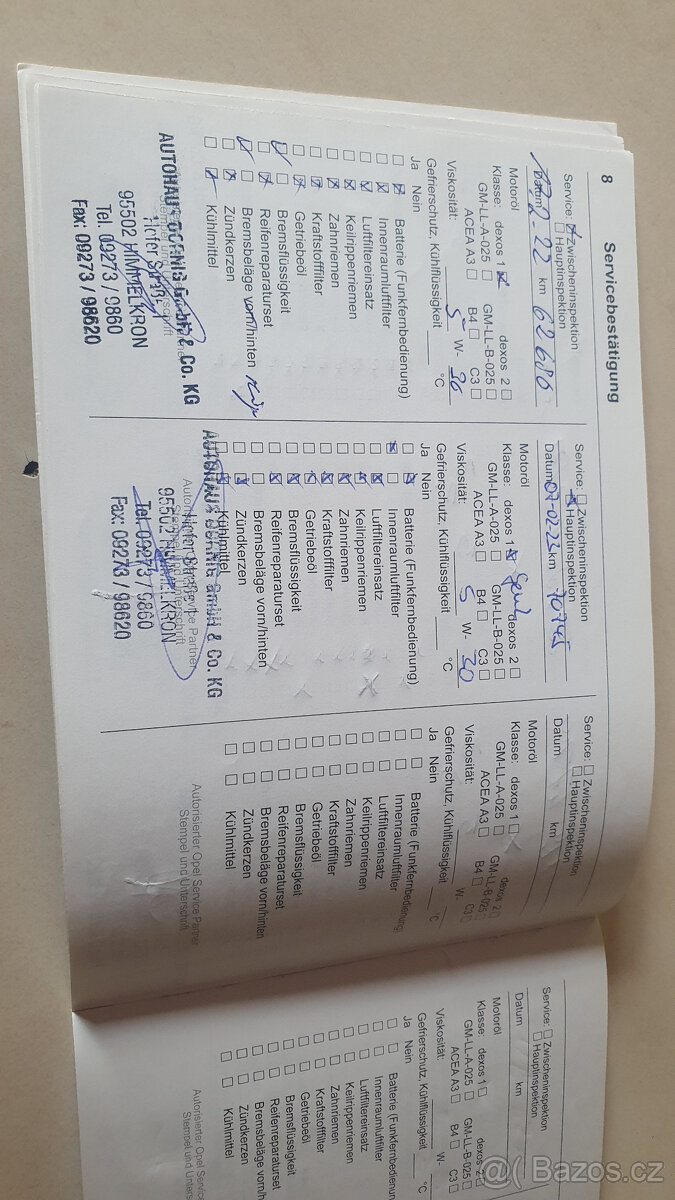 8
Servicebestätigung
Service: ☒ Zwischeninspektion
☐ Hauptinspektion
Datum km 62686
Motoröl
Klasse: dexos 1 ☒ dexos 2 ☐
GM-LL-A-025 ☐ GM-LL-B-025 ☐
ACEA A3 ☐ B4 ☐ C3 ☐
Viskosität: 5 W- 30
Gefrierschutz, Kühlflüssigkeit ____ °C
Ja Nein
☐ ☒ Batterie (Funkfernbedienung)
☐ ☒ Innenraumluftfilter
☐ ☒ Luftfiltereinsatz
☐ ☒ Keilrippenriemen
☐ ☒ Zahnriemen
☐ ☒ Kraftstofffilter
☐ ☒ Getriebeöl
☒ ☐ Bremsflüssigkeit
☐ ☒ Reifenreparaturset
☒ ☐ Bremsbeläge vorn/hinten
☐ ☒ Zündkerzen
☐ ☒ Kühlmittel
AUTOHAUS DENNIG GmbH & Co. KG
Hofer Str.
95502 HIMMELKRON
Tel. 09273 / 9860
Fax: 09273 / 98620
Service: ☐ Zwischeninspektion
☒ Hauptinspektion
Datum 07-02-23 km 70745
Motoröl
Klasse: dexos 1 ☒ dexos 2 ☐
GM-LL-A-025 ☐ GM-LL-B-025 ☐
ACEA A3 ☐ B4 ☐ C3 ☐
Viskosität: 5 W- 30
Gefrierschutz, Kühlflüssigkeit ____ °C
Ja Nein
☐ ☒ Batterie (Funkfernbedienung)
☒ ☐ Innenraumluftfilter
☐ ☒ Luftfiltereinsatz
☐ ☒ Keilrippenriemen
☐ ☒ Zahnriemen
☐ ☒ Kraftstofffilter
☐ ☒ Getriebeöl
☐ ☒ Bremsflüssigkeit
☐ ☒ Reifenreparaturset
☐ ☐ Bremsbeläge vorn/hinten
☐ ☒ Zündkerzen
☐ ☒ Kühlmittel
AUTOHAUS DENNIG GmbH & Co. KG
95502 HIMMELKRON
Tel. 09273 / 9860
Fax: 09273 / 98620
Service: ☐ Zwischeninspektion
☐ Hauptinspektion
Datum km
Motoröl
Klasse: dexos 1 ☐ dexos 2 ☐
GM-LL-A-025 ☐ GM-LL-B-025 ☐
ACEA A3 ☐ B4 ☐ C3 ☐
Viskosität: W-
Gefrierschutz, Kühlflüssigkeit ____ °C
Ja Nein
☐ ☐ Batterie (Funkfernbedienung)
☐ ☐ Innenraumluftfilter
☐ ☐ Luftfiltereinsatz
☐ ☐ Keilrippenriemen
☐ ☐ Zahnriemen
☐ ☐ Kraftstofffilter
☐ ☐ Getriebeöl
☐ ☐ Bremsflüssigkeit
☐ ☐ Reifenreparaturset
☐ ☐ Bremsbeläge vorn/hinten
☐ ☐ Zündkerzen
☐ ☐ Kühlmittel
Autorisierter Opel Service Partner
Stempel und Unterschrift
Service: ☐ Zwischeninspektion
☐ Hauptinspektion
Datum km
Motoröl
Klasse: dexos 1 ☐ dexos 2 ☐
GM-LL-A-025 ☐ GM-LL-B-025 ☐
ACEA A3 ☐ B4 ☐ C3 ☐
Viskosität: W-
Gefrierschutz, Kühlflüssigkeit ____ °C
Ja Nein
☐ ☐ Batterie (Funkfernbedienun
☐ ☐ Innenraumluftfilter
☐ ☐ Luftfiltereinsatz
☐ ☐ Keilrippenriemen
☐ ☐ Zahnriemen
☐ ☐ Kraftstofffilter
☐ ☐ Getriebeöl
☐ ☐ Bremsflüssigkeit
☐ ☐ Reifenreparaturset
☐ ☐ Bremsbeläge vorn/hin
☐ ☐ Zündkerzen
☐ ☐ Kühlmittel
Autorisierter Opel Servic
Stempel und Unters
Bazos.cz